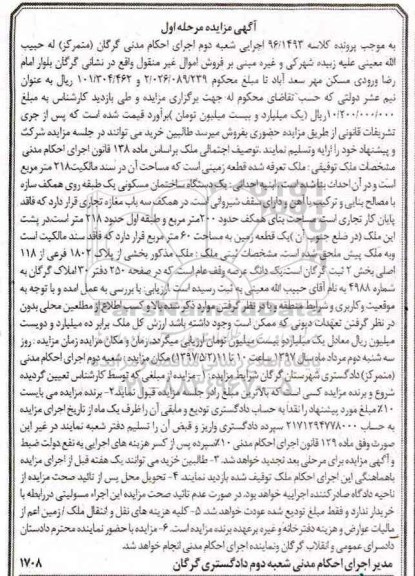 آگهی مزایده مرحله اول
به موجب پرونده کلاسه ۹۶/۱۴۹۳ اجرایی شعبه دوم اجرای احکام مدنی گرگان (متمرکز) له حبیب
الله معینی علیه زبیده شهرکی و غیره مبنی بر فروش اموال غیر منقول واقع در نشانی گرگان بلوار امام
رضا ورودی مسکن مهر سعد آباد تا مبلغ محکوم ۲/۰۲۶/۰۸۹/۲۳۹ و ۱۰۱/۳۰۴/۴۶۲ ریال به عنوان
نیم عشر دولتی که حسب تقاضای محکوم له جهت برگزاری مزایده و طی بازدید کارشناس به مبلغ
۱۰/۲۰۰/۰۰۰/۰۰۰ریال (یک میلیارد و بیست میلیون تومان )برآورد قیمت شده است که پس از جری
تشریفات قانونی از طریق مزایده حضوری بفروش میرسد طالبین خرید می توانند در جلسه مزایده شرکت
و پیشنهاد خود را ارایه وتسلیم نمایند .توصیف اجتمالی ملک براساس ماده ۱۳۸ قانون اجرای احکام مدنی
مشخصات ملک توقیفی : ملک تعرفه شده قطعه زمینی است که مساحت آن در سند مالکیت۲۱۸ متر مربع
است و در آن احداث بنا شده است. ابنیه احداثی : یک دستگاه ساختمان مسکونی یک طبقه روی همکف سازه
با مصالح بنایی و ترکیب با تیر و دارای سقف شیروانی است. در همکف سه باب مغازه تجاری قرار دارد که فاقد
پایان کار تجاری است. مساحت بنای همکف حدود ۲۰۰متر مربع و طبقه اول حدود ۲۱۸ متر است.در پشت
این ملک (در ضلع جنوب آن )یک قطعه زمین به مساحت ۶۰ متر مربع قرار دارد که فاقد سند مالکیت است
وبه ملک پیش ملحق شده است. مشخصات ثبتی ملک : ملک مذکور بخشی از پلاک ۱۸۰۲ فرعی از ۱۱۸
اصلی بخش ۲ ثبت گرگان است.یک دانگ عرصه وقف عام است که در صفحه ۲۵۰ دفتر ۳۰ املاک گرگان به
شماره ۴۹۸۸ به نام آقای حبیب الله معینی به ثبت رسیده است.ارزیابی: با بررسی به عمل آمده و با توجه به
موقعیت و کاربری و شرایط منطقه وبا در نظر گرفتن موارد ذکر شده بالا و کسب اطلاع از مطلعین محلی بدون
در نظر گرفتن تعهدات دیونی که ممکن است وجود داشته باشد ارزش کل ملک برابر ده میلیارد و دویست
میلیون ریال معادل یک میلیاردو بیست میلیون تومان ارزیابی میگردد.زمان و مکان مزایده زمان مزایده : روز
سه شنبه دوم مرداد ماه سال ۱۳۹۷ ساعت ۱۰ تا ۱۱(۱۳۹۷/۵/۲) مکان مزایده : شعبه دوم اجرای احکام مدنی
(متمرکز) دادگستری شهرستان گرگان شرایط مزایده: ۱- مزایده از مبلغی که توسط کارشناس تعیین گردیده
شروع و برنده مزایده کسی است که بالاترین مبلغ را در جلسه مزایده قبول نماید ۲- برنده مزایده می بایست
۱۰٪مبلغ مورد پیشنهاد را نقدا به حساب دادگستری تودیع و مابقی آن را ظرف یک ماه از تاریخ اجرای مزایده
به حساب ۲۱۷۱۲۹۴۷۷۸۰۰۰ سپرده دادگستری واریز و قبض آن را تسلیم دفتر شعبه نمایند در غیر این
صورت وفق ماده ۱۲۹ قانون اجرای احکام مدنی ۱۰٪سپرده پس از کسر هزینه های اجرایی به نفع دولت ضبط
و آگهی مزایده برای مرحله بعد تجدید خواهد شد. ۳- طالبین خرید می توانند یک هفته قبل از اجرای مزایده
باهماهنگی این اجرای احکام ملک توقیف شده بازدید نمایند. ۴- تحویل محل پس از تائید صحت مزایده از
ناحیه دادگاه صادرکننده اجراییه خواهد بود. در صورت عدم تائید صحت مزایده این اجراء مسولیتی دررابطه با
خریدار ندارد و فقط مبلغ تودیع شده عودت خواهد شد. ۵- کلیه هزینه های نقل و انتقال ملک /زمین اعم از
مالیات عوارض و هزینه دفترخانه و غیره برعهده برنده مزایده است. ۶- مزایده با حضور نماینده محترم دادستان
دادسرای عمومی و انقلاب گرگان ونماینده اجرای احکام مدنی انجام خواهد شد.
مدیر اجرای احکام مدنی شعبه دوم دادگستری گرگان ۱۷۰۸
ParsNamadData